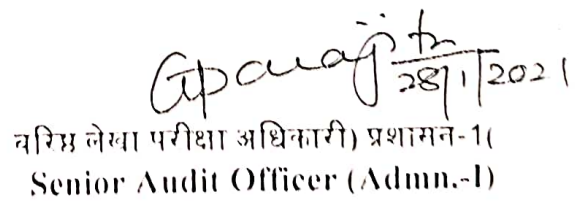 Aparajita
28/1/2021
वरिष्ठ लेखा परीक्षा अधिकारी) प्रशासन-1(
Senior Audit Officer (Admn.-I)